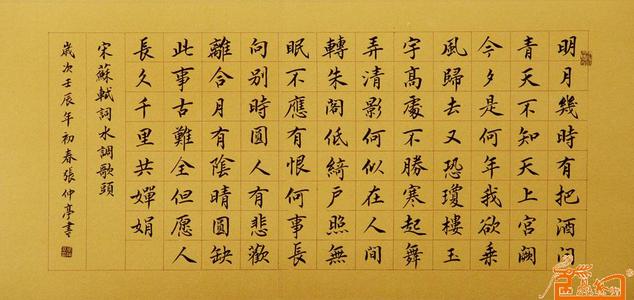 明月幾時有把酒问
青天不知天上宫闕
今夕是何年我欲乘
風歸去又恐瓊樓玉
宇髙處不勝寒起舞
弄清影何似在人間
轉朱阁低綺户照無
眠不應有恨何事長
向别時圓人有悲歡
離合月有陰晴圓缺
此事古難全但愿人
長久千里共嬋娟
宋蘇軾詞水調歌頭
歲次壬辰年初春張仲亭書